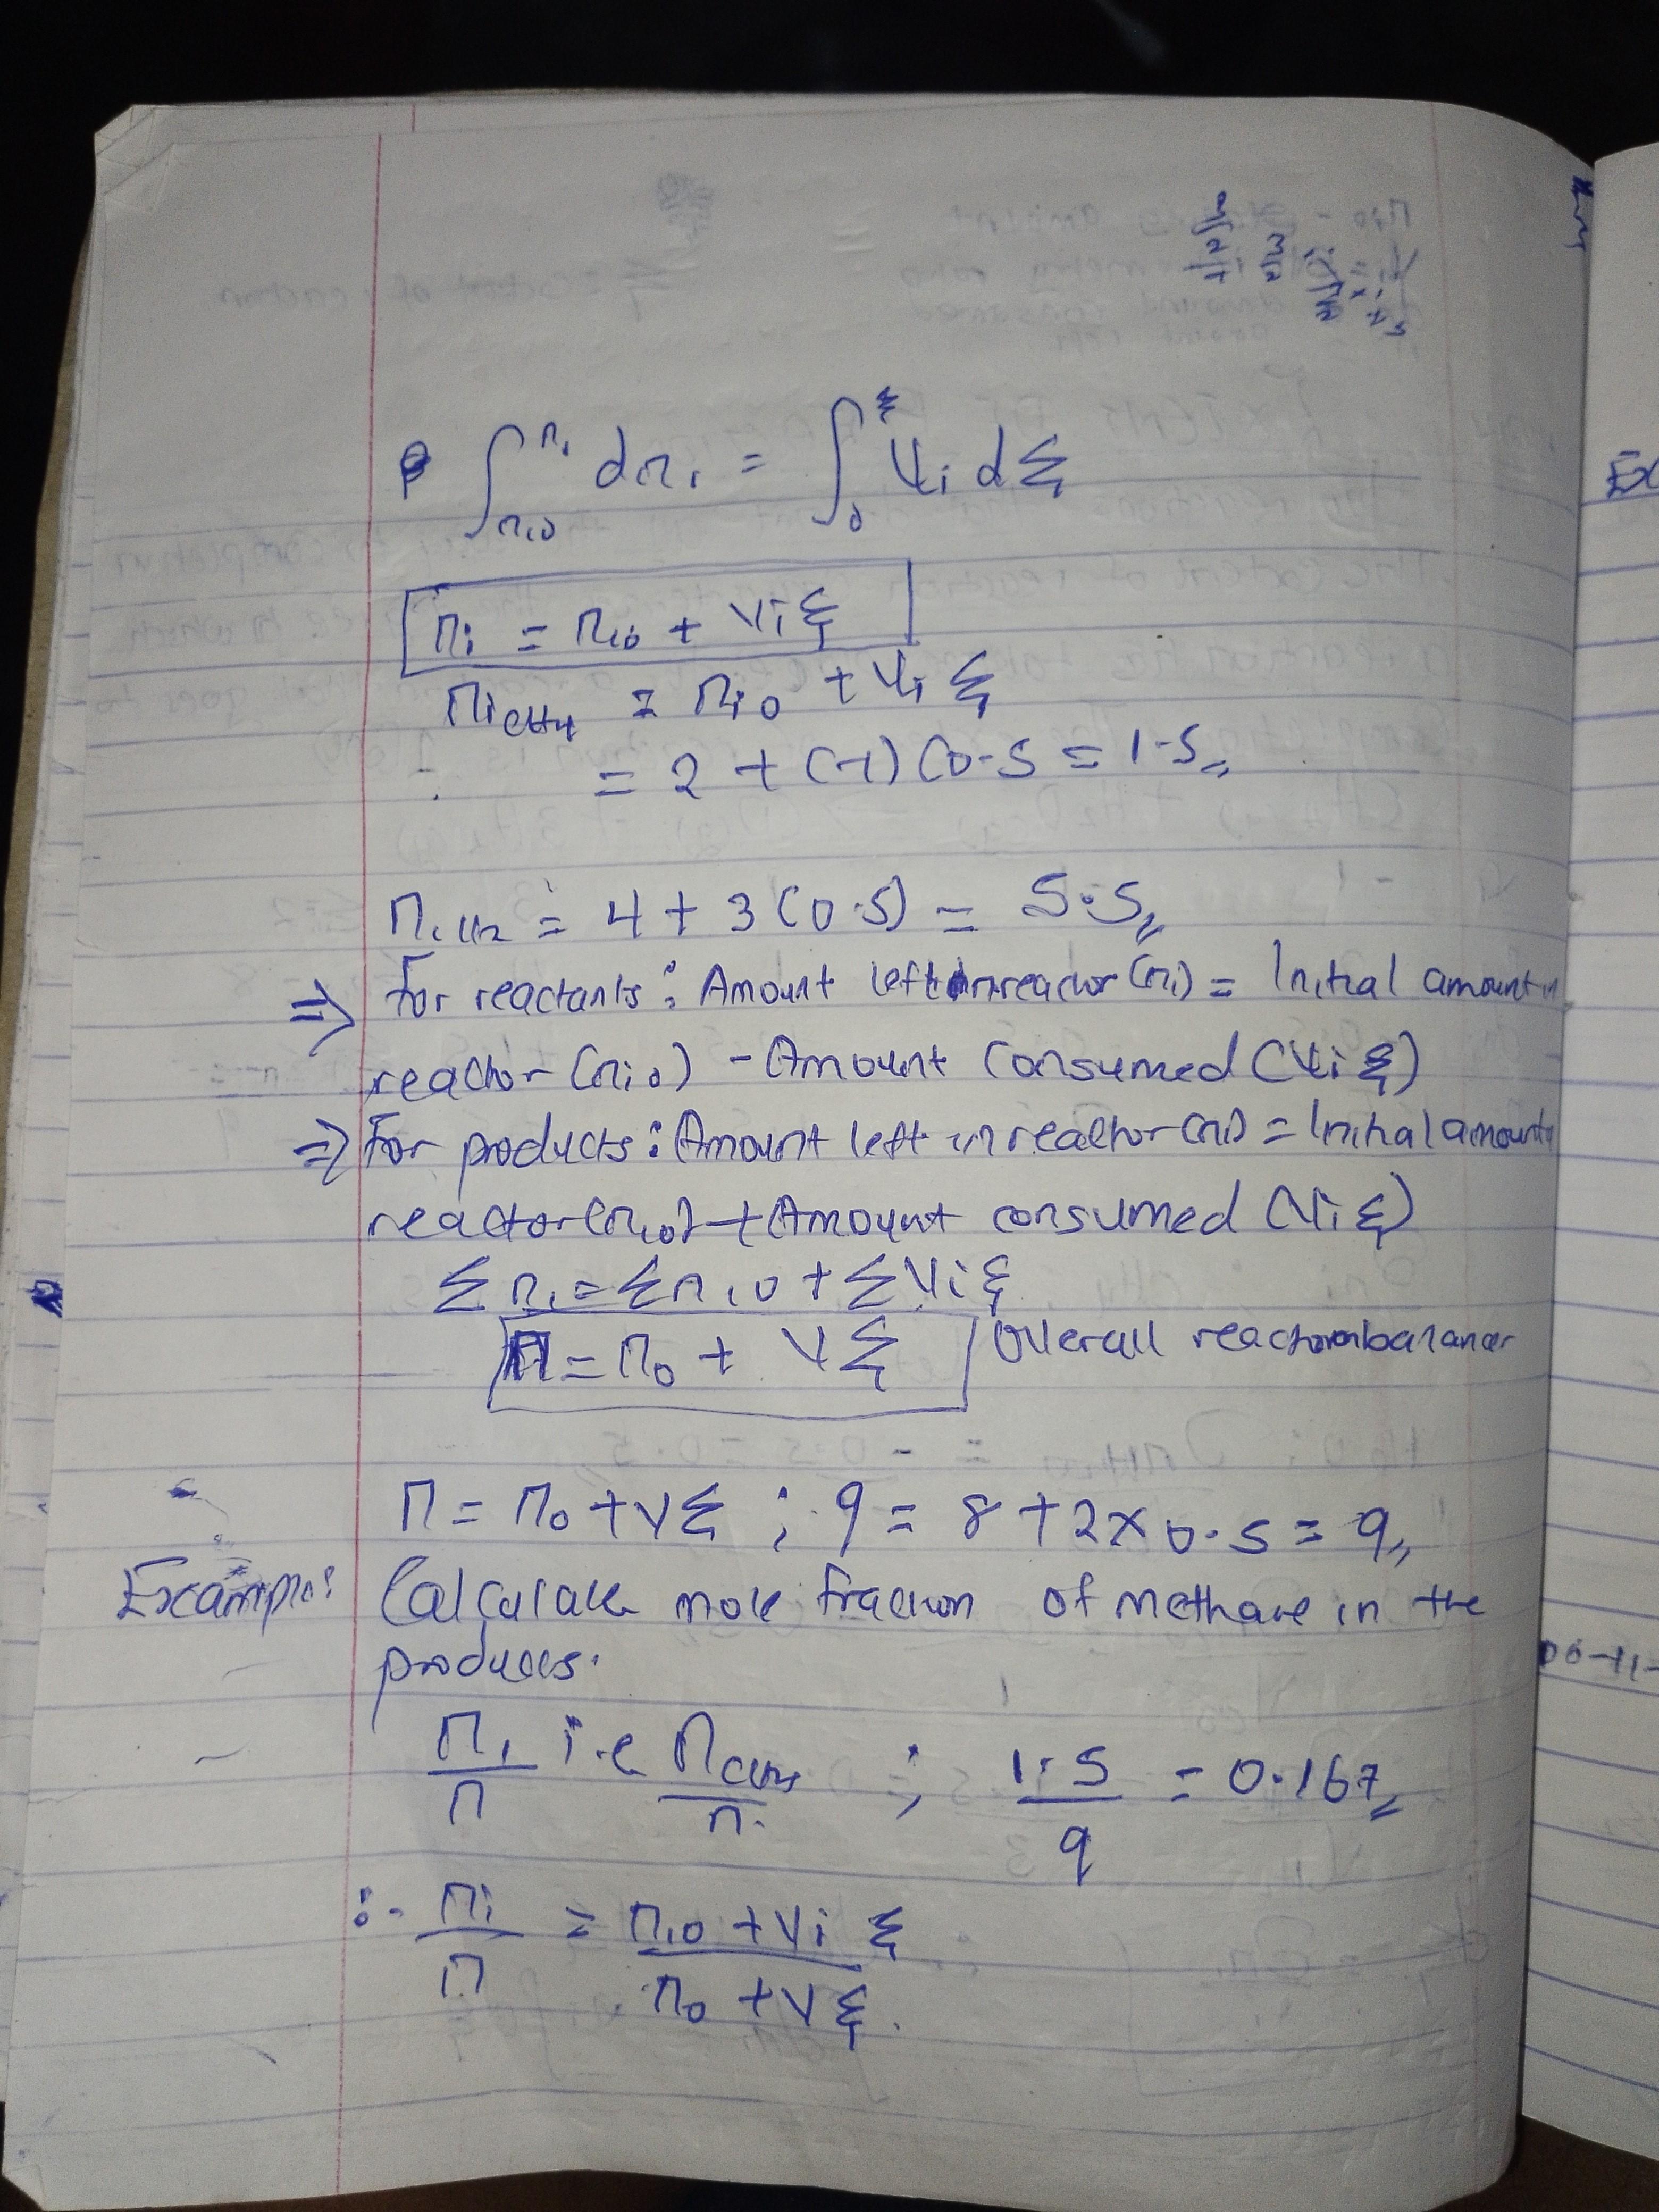 ∫_{ni0}^{ni} dni = ∫_0^ξ νi dξ
ni = ni0 + νiξ
niCH4 = ni0 + νi ξ
= 2 + (-1) (0.5 = 1.5,,
niH2 = 4 + 3 (0.5) = 5.5,,
⇒ For reactants : Amount left in reactor (ni) = Initial amount in
reactor (ni0) - Amount Consumed (νi ξ)
⇒ For products : Amount left in reactor (ni) = Initial amount in
reactor (ni0) + Amount consumed (νi ξ)
Σ ni = Σ ni0 + Σ νi ξ
n = n0 + νξ Overall reactor balance
n = n0 + νξ ; 9 = 8 + 2 x 0.5 = 9,,
Example: Calculate mole fraction of methane in the
produces.
ni/n i.e nCH4/n. ; 1.5/9 = 0.167,,
∴ ni/n = ni0 + νi ξ / n0 + νξ.
Ex
06-11-